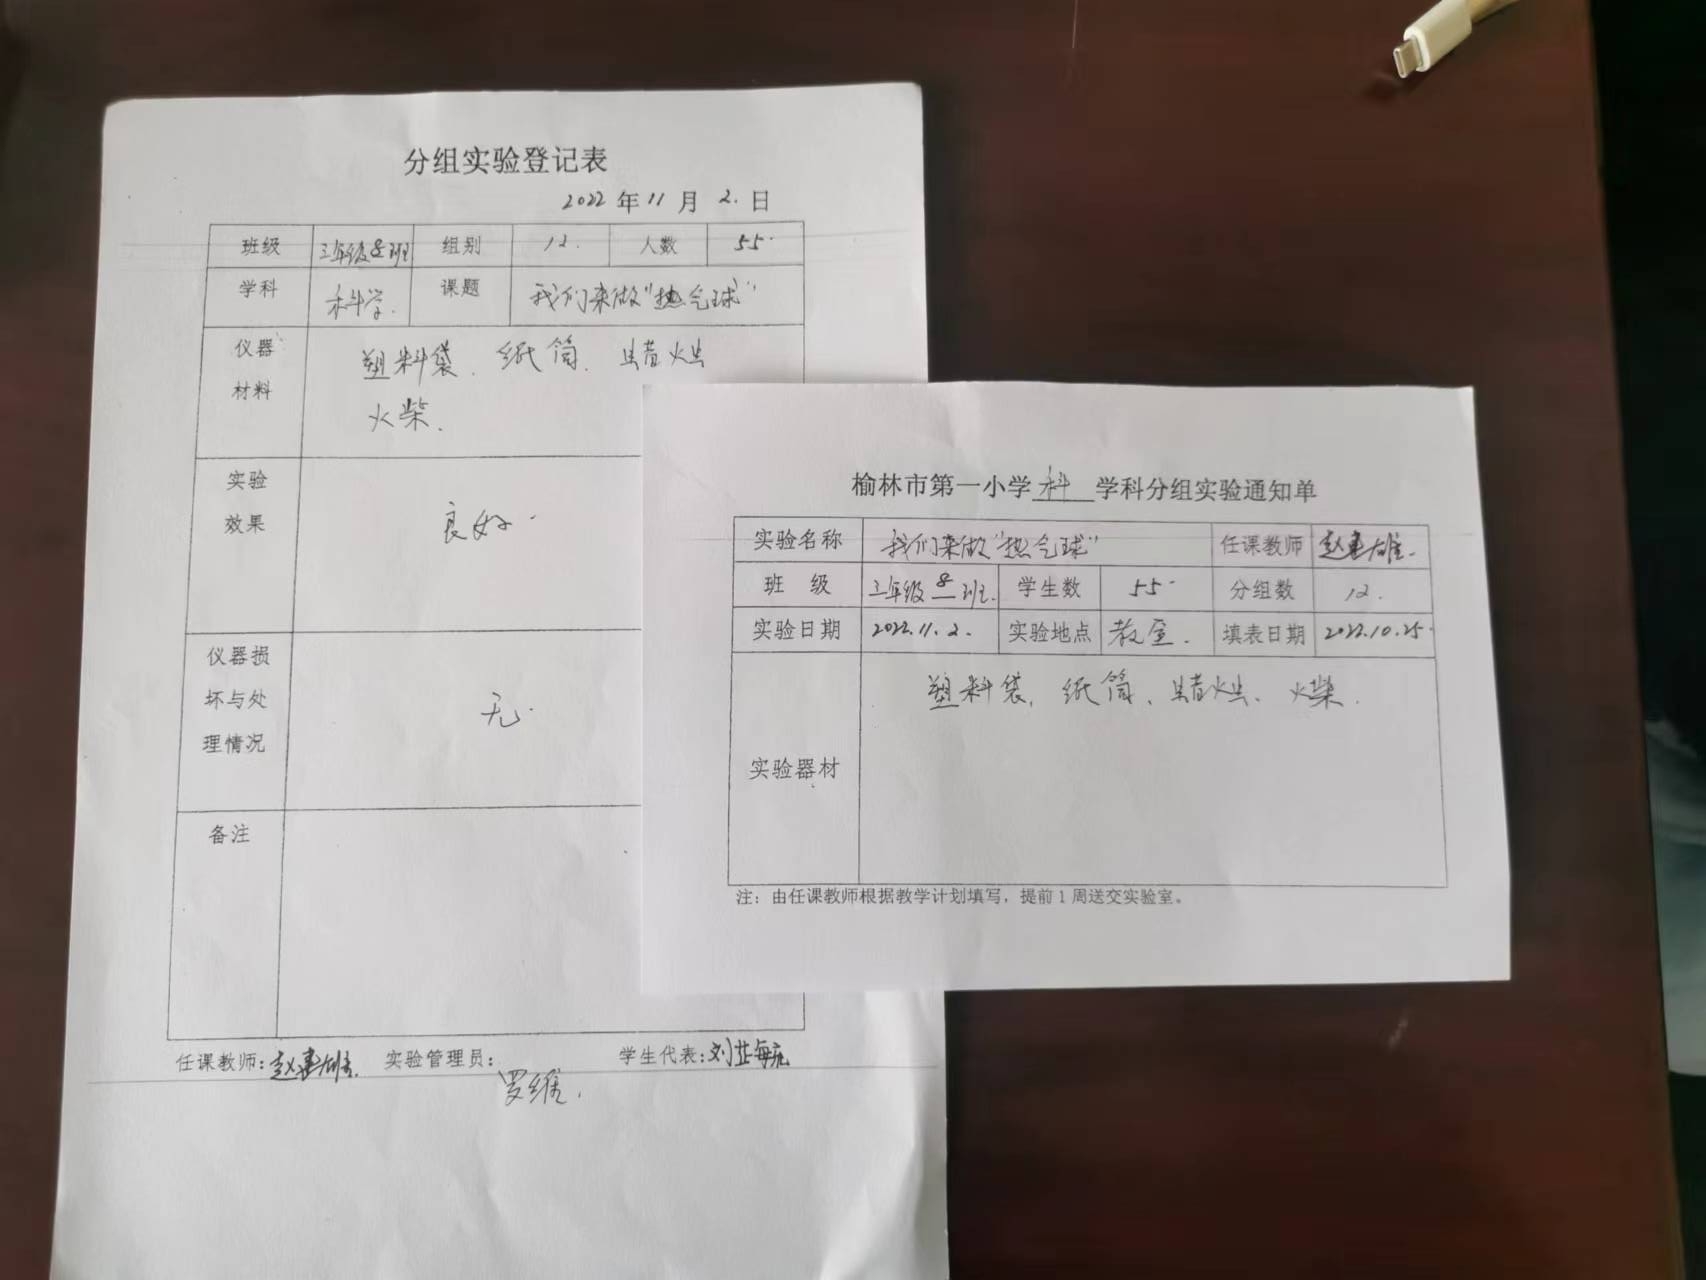 分组实验登记表
2022 年 11 月 2. 日
班级 三年级8班 组别 12. 人数 55.
学科 科学. 课题 我们来做"热气球"
仪器 塑料袋. 纸筒. 蜡烛
材料 火柴.
实验
效果 良好.
仪器损
坏与处 无.
理情况
备注
任课教师: 实验管理员: 学生代表:
罗维.
榆林市第一小学 科 学科分组实验通知单
实验名称 我们来做"热气球" 任课教师
班 级 三年级 8 班. 学生数 55. 分组数 12.
实验日期 2022.11.2. 实验地点 教室. 填表日期 2022.10.25.
塑料袋, 纸筒、蜡烛、火柴.
实验器材
注：由任课教师根据教学计划填写，提前 1 周送交实验室。